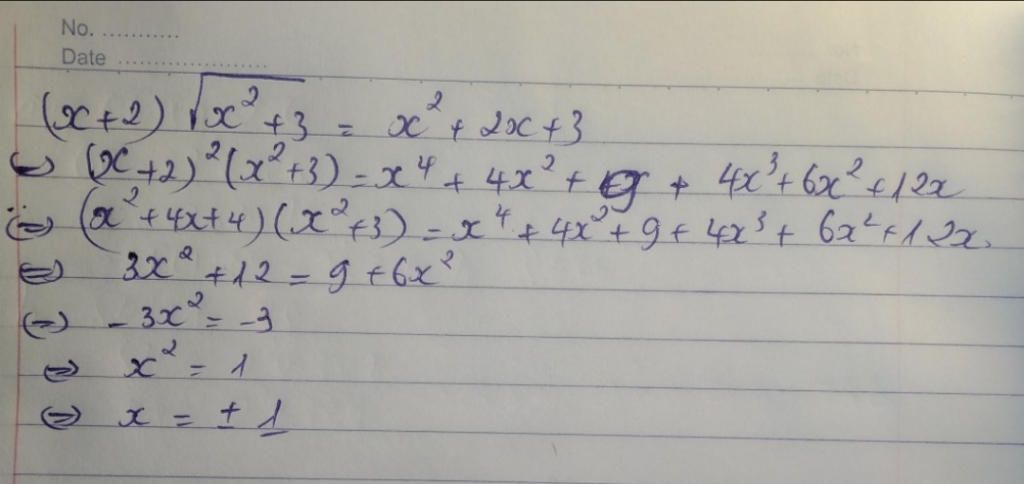 No. ...........
Date .....................
(x+2) √(x²+3) = x² + 2x + 3
⇔ (x+2)²(x²+3) = x⁴ + 4x² + 9 + 4x³ + 6x² + 12x
⇔ (x²+4x+4)(x²+3) = x⁴ + 4x² + 9 + 4x³ + 6x² + 12x.
⇔ 3x² + 12 = 9 + 6x²
⇔ - 3x² = -3
⇔ x² = 1
⇔ x = ± 1